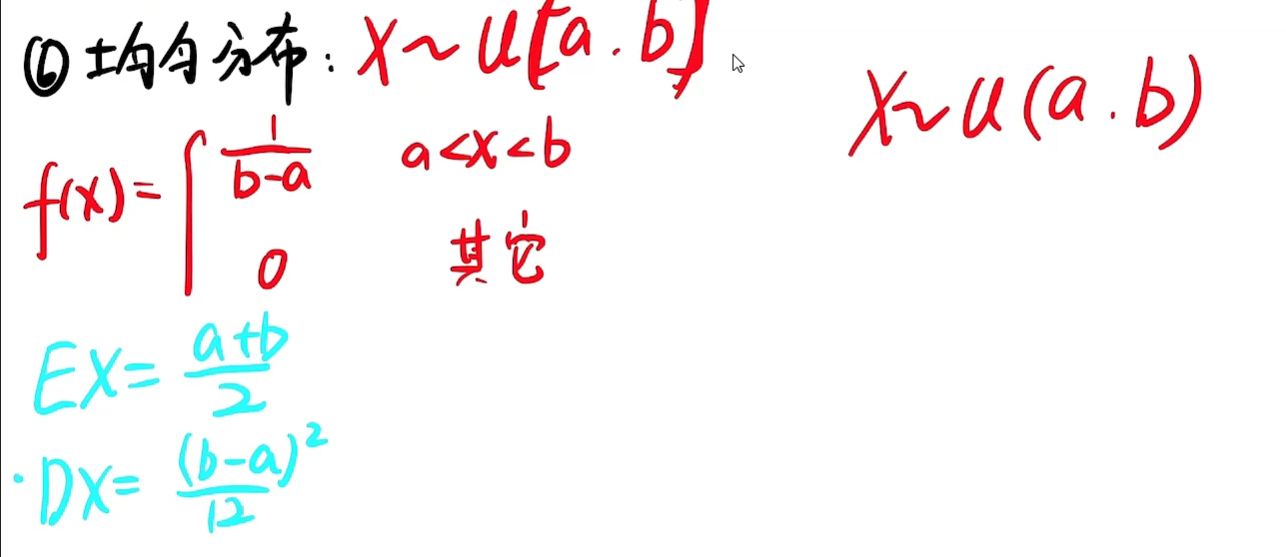 ⑥ 均匀分布: X~U[a.b]
X~U(a.b)
f(x)= { 1/(b-a) a<x<b
0 其它
EX= (a+b)/2
DX= (b-a)²/12